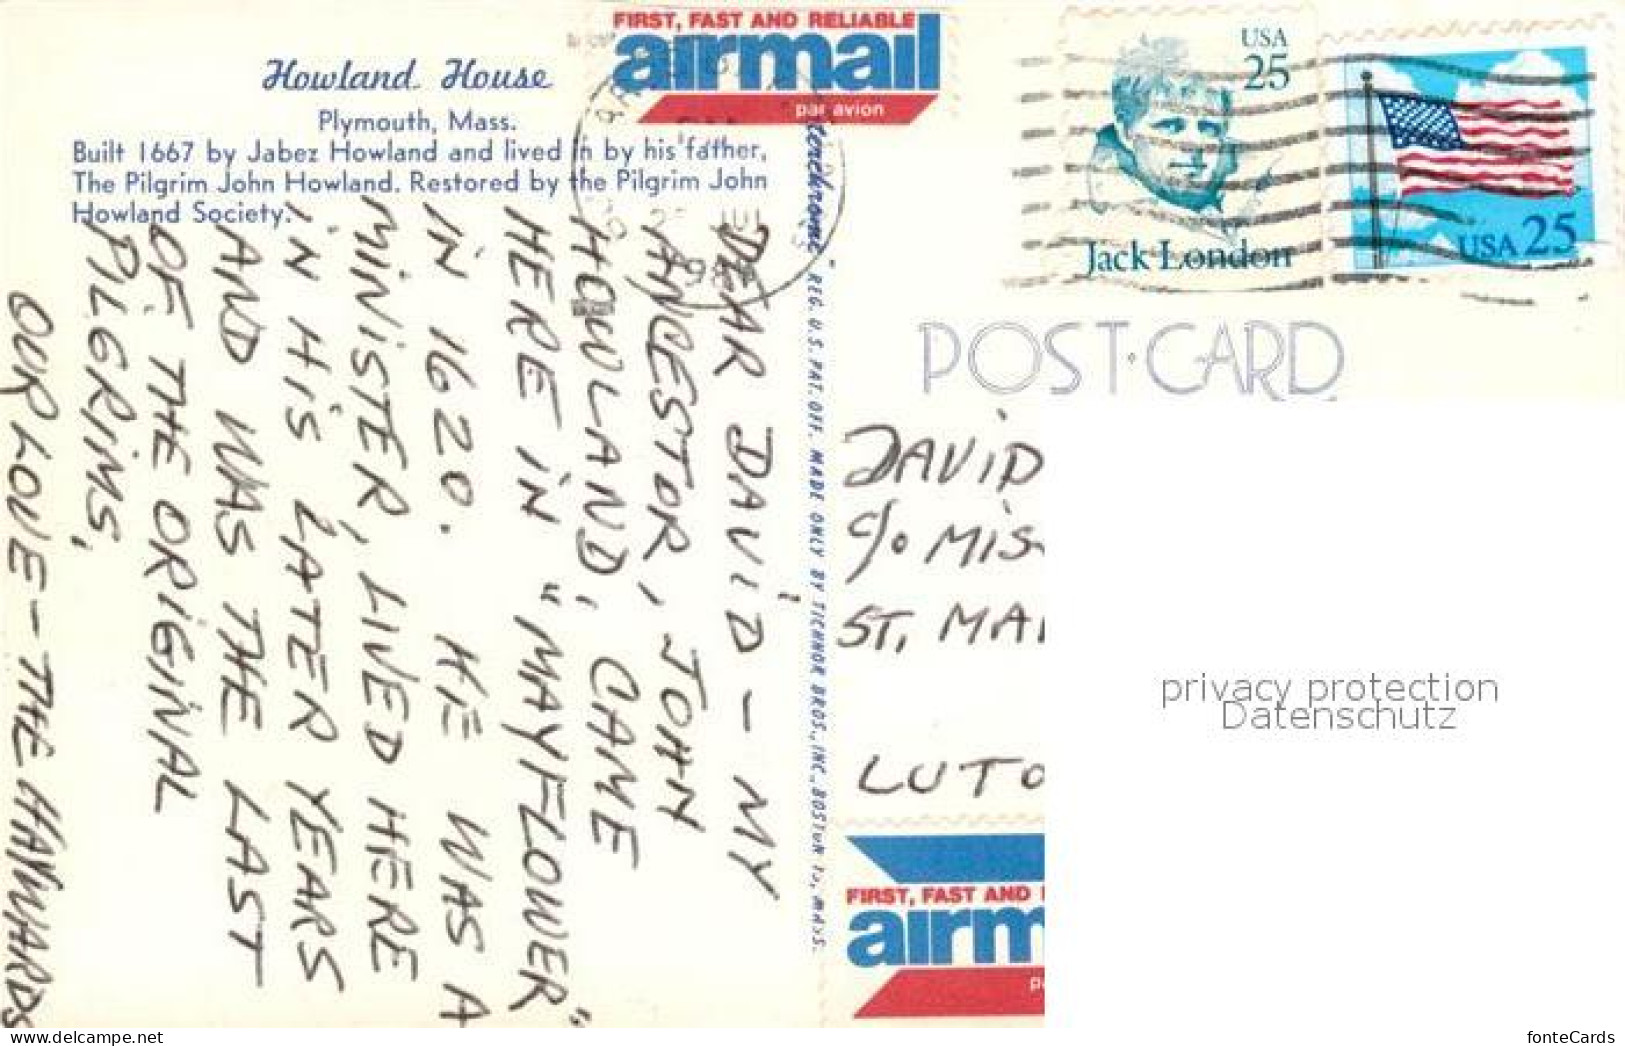 Howland House
Plymouth, Mass.
Built 1667 by Jabez Howland and lived in by his father,
The Pilgrim John Howland. Restored by the Pilgrim John
Howland Society.
DEAR DAVID - MY
ANCESTOR, JOHN
HOWLAND, CAME
HERE IN "MAYFLOWER"
IN 1620. HE WAS A
MINISTER, LIVED HERE
IN HIS LATER YEARS
AND WAS THE LAST
OF THE ORIGINAL
PILGRIMS,
OUR LOVE - THE HAYWARDS
FIRST, FAST AND RELIABLE
airmail
par avion
REG. U.S. PAT. OFF. MADE ONLY BY TICHNOR BROS., INC., BOSTON 15, MASS.
USA
25
Jack London
USA 25
POST CARD
DAVID
c/o MIS
ST. MA
LUTO
FIRST, FAST AND
airm
p
privacy protection
Datenschutz
fonteCards